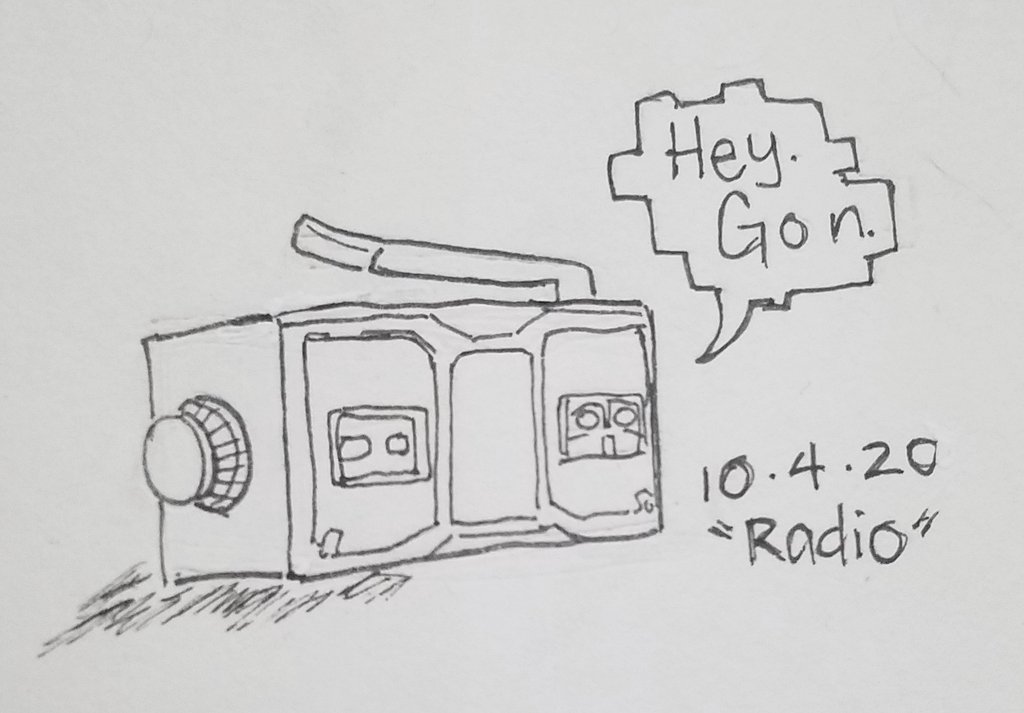 Hey.
Gon.
10.4.20
"Radio"